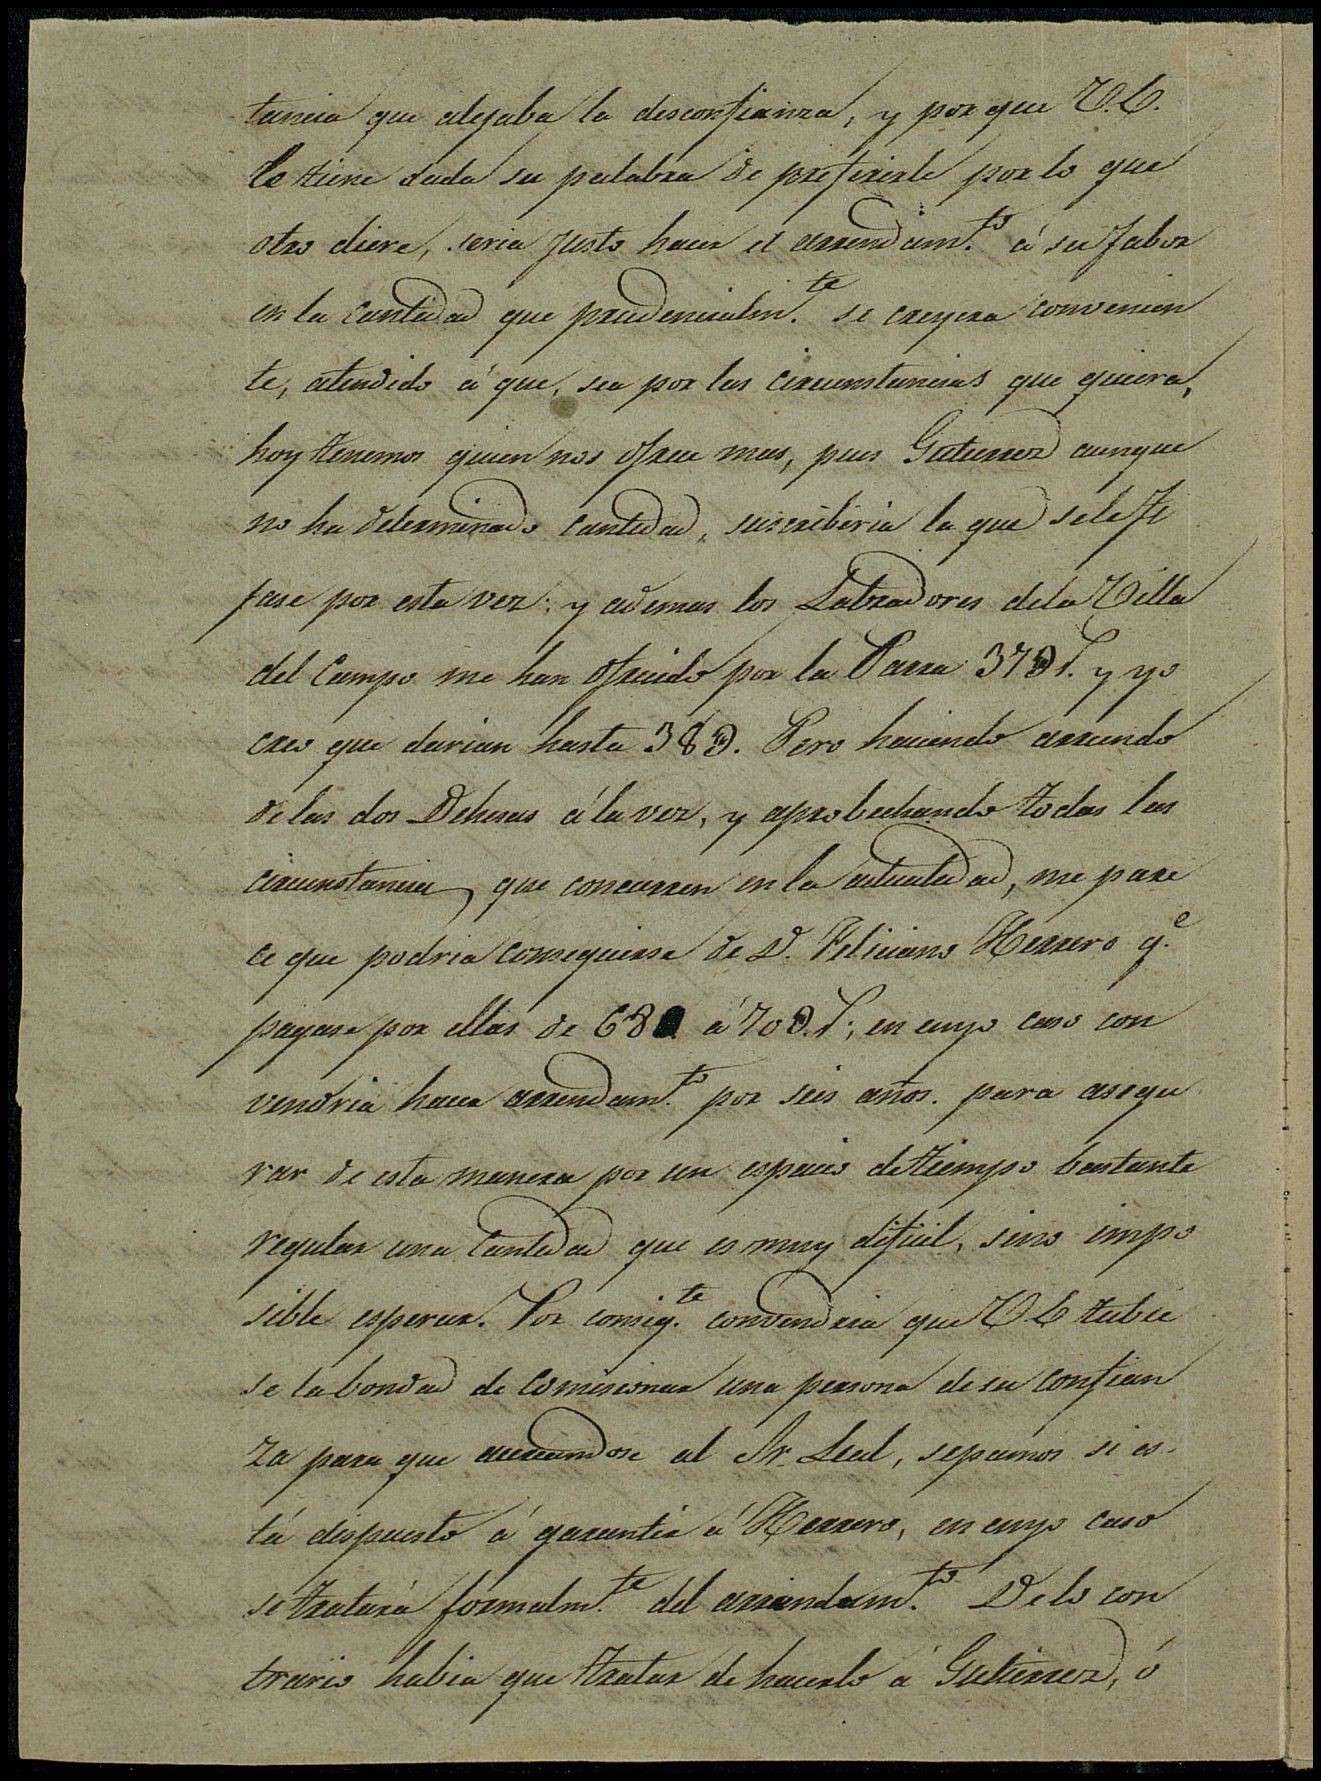 tancia que alejaba la desconfianza, y por que V.E.
le tiene dada su palabra de preferirle por lo que
otro diere, seria justo hacer el arrendam.to á su fabor
en la cantidad que prudencialm.te se creyera convenien
te, atendido á que, sea por las circunstancias que quiera,
hoy tenemos quien nos ofrece mas, pues Gutierrez aunque
no ha determinado cantidad, suscribiria la que se le fi
jase por esta vez; y ademas los Labradores de la Villa
del Campo me han ofrecido por la Parra 37 y yo
creo que darian hasta 38. Pero haciendo arriendo
de las dos Dehesas á la vez, y aprobechando todas las
circunstancias que concurren en la actualidad, me pare
ce que podria conseguirse de D. Feliciano Herrero q.e
pagase por ellas de 68 á 70; en cuyo caso con
vendria hacer arrendam.to por seis años para asegu
rar de esta manera por un espacio de tiempo bastante
regular una cantidad que es muy dificil, sino impo
sible esperar. Por consig.te convendria que V E tubie
se la bondad de comisionar una persona de su confian
za para que acercandose al Sr. Leal, sepamos si es-
tá dispuesto á garantir á Herrero, en cuyo caso
se tratará formalm.te del arriendam.to De lo con
trario habia que tratar de hacerlo á Gutierrez, ó